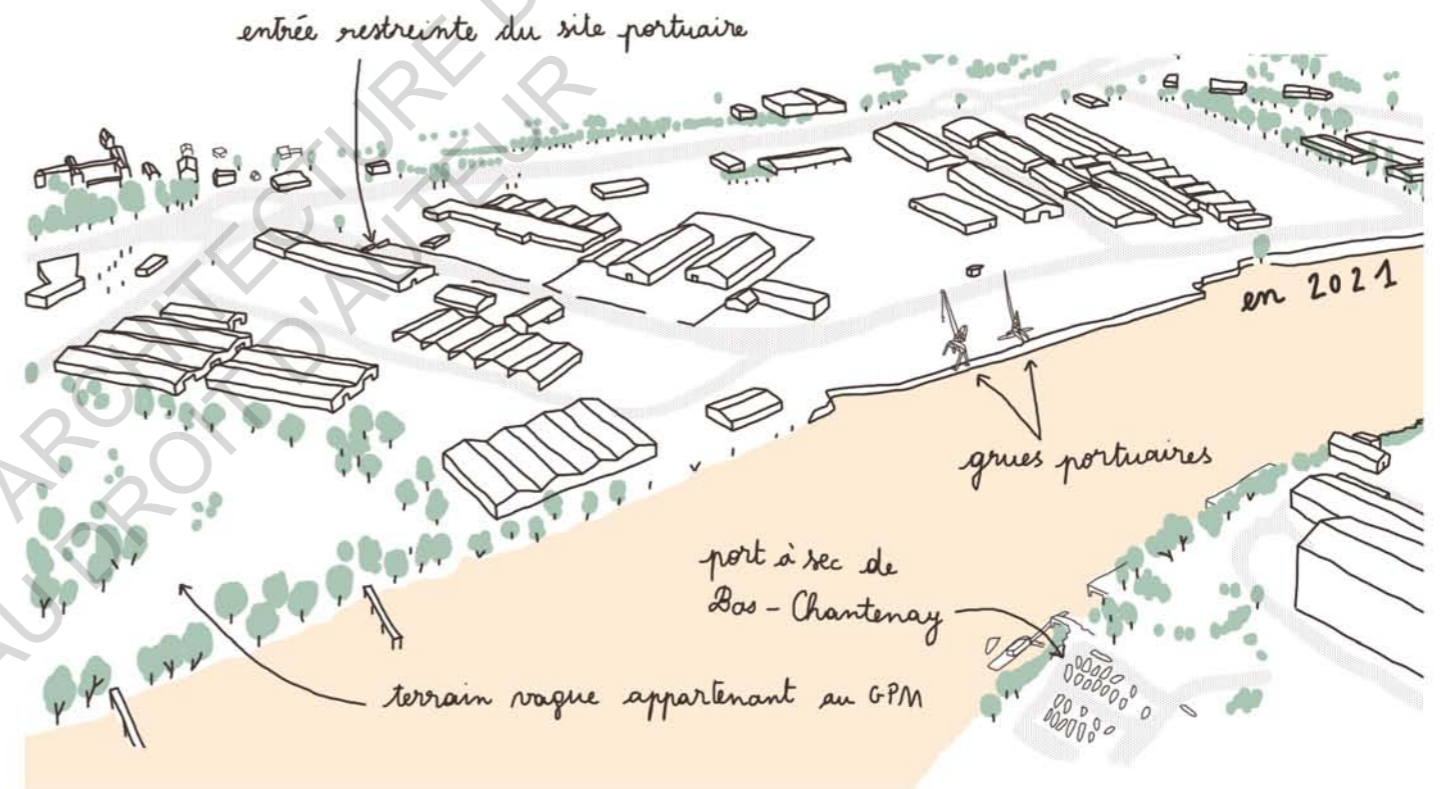 entrée restreinte du site portuaire
en 2021
grues portuaires
port à sec de
Bas - Chantenay
terrain vague appartenant au GPM
ARCHITECTURE D
AU DROIT D'AUTEUR